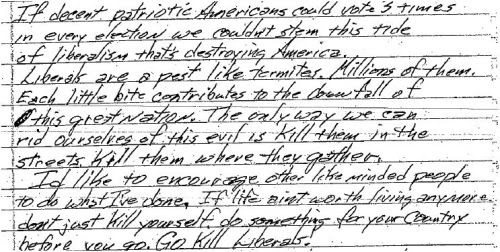 If decent patriotic Americans could vote 3 times
in every election we couldn't stem this tide
of liberalism that's destroying America.
Liberals are a pest like termites. Millions of them.
Each little bite contributes to the downfall of
this great nation. The only way we can
rid ourselves of this evil is kill them in the
streets. Kill them where they gather.
I'd like to encourage other like minded people
to do what I've done. If life aint worth living anymore
don't just kill yourself. do something for your Country
before you go. Go Kill Liberals.